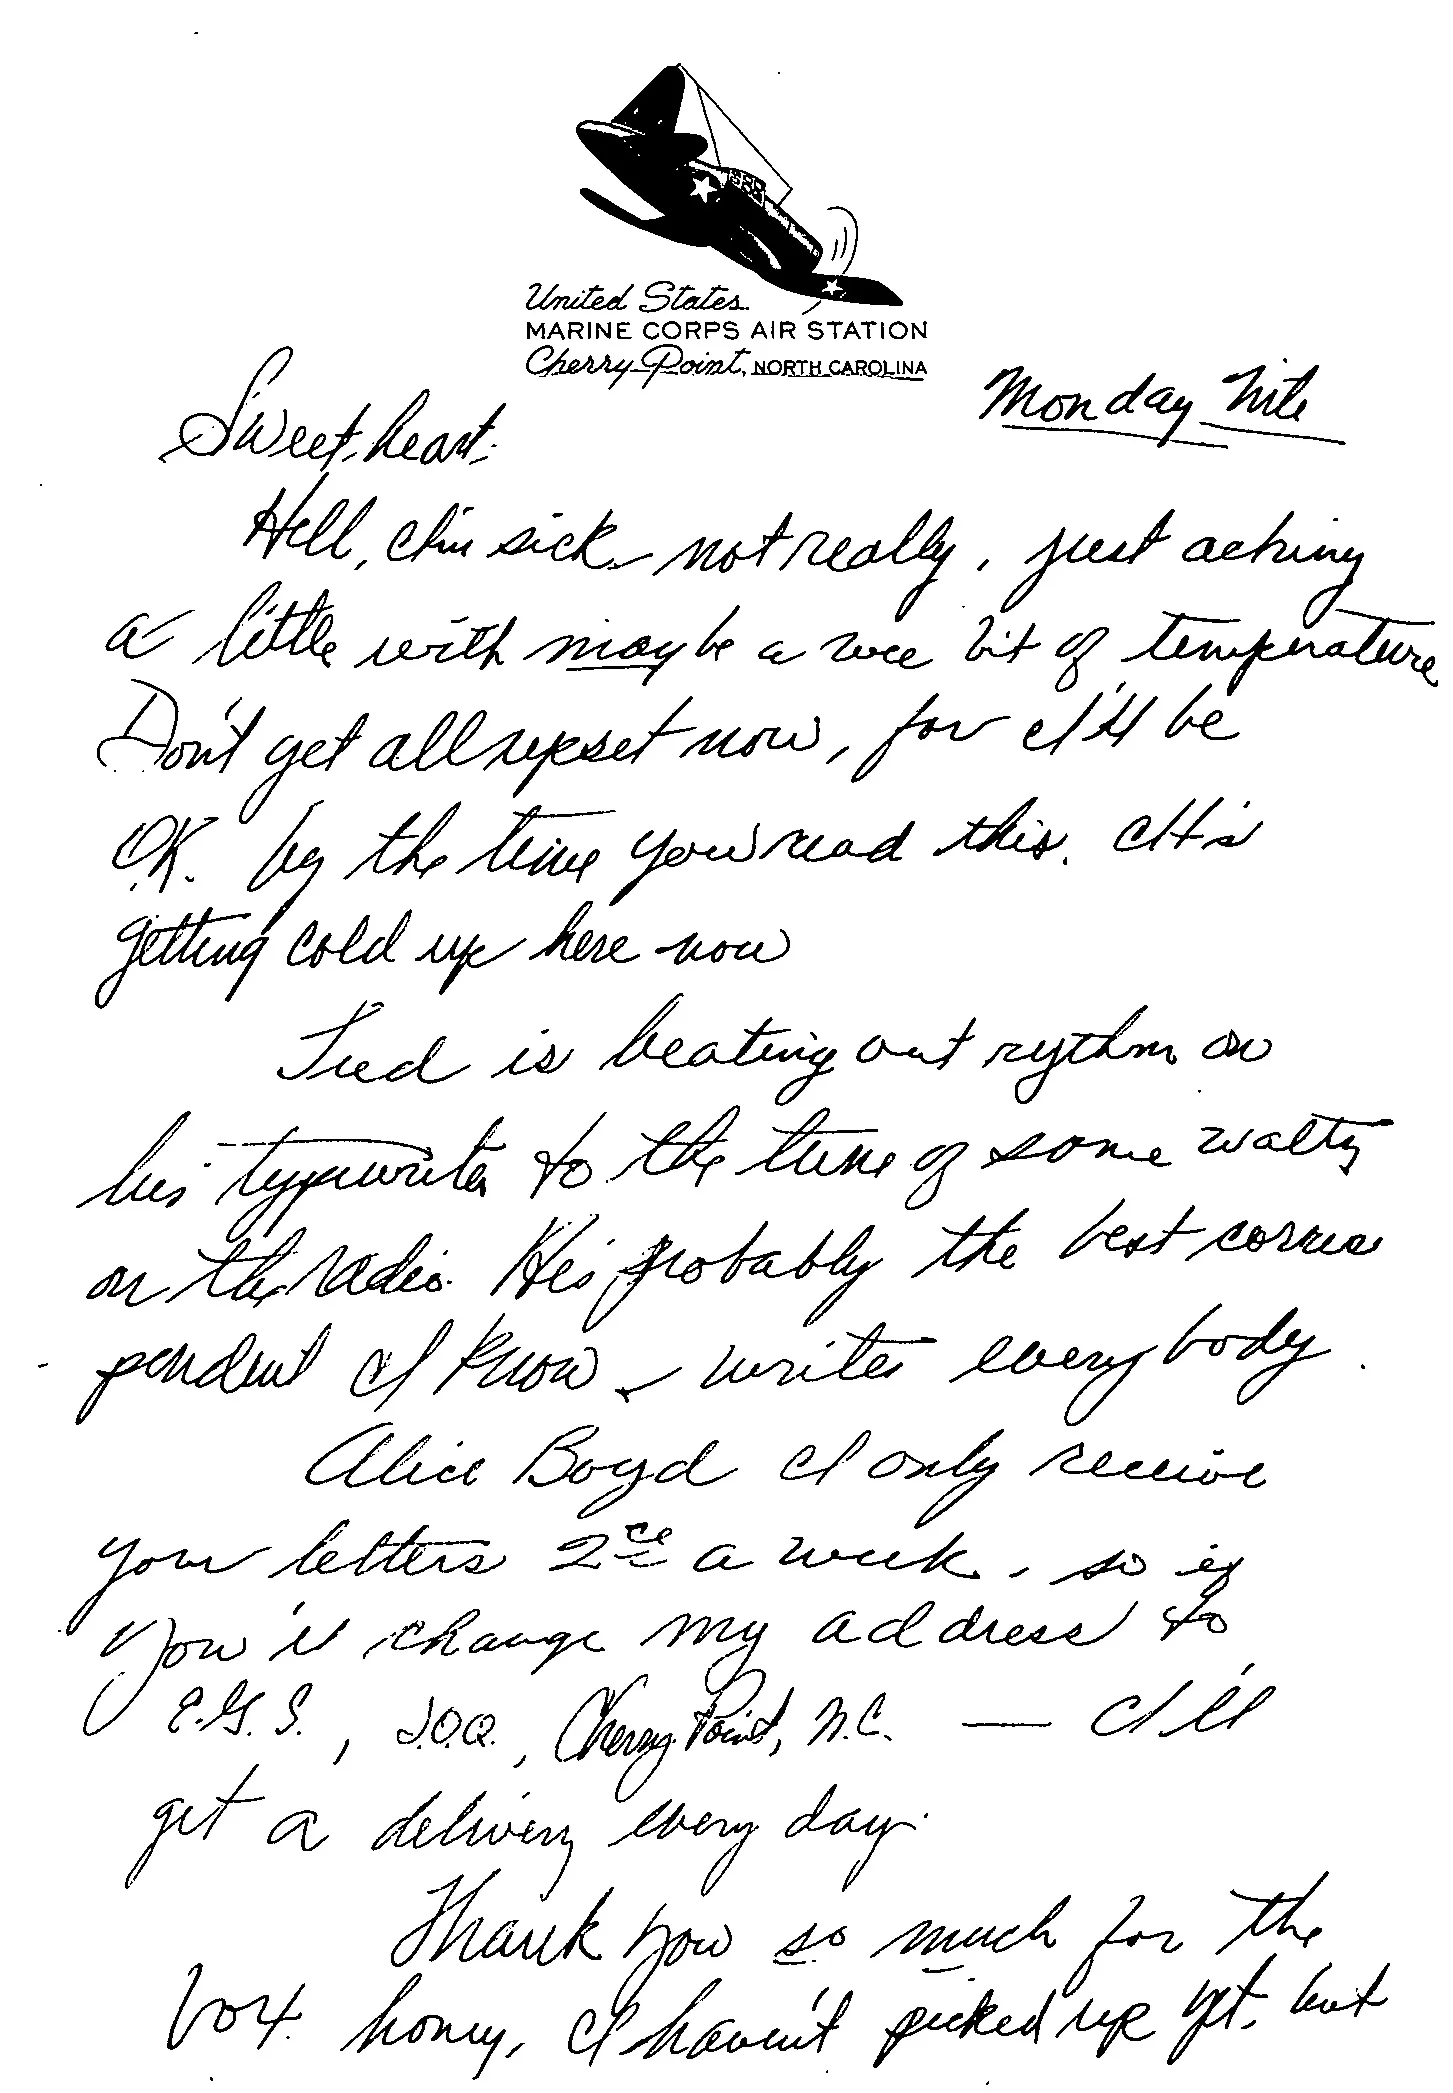 United States
MARINE CORPS AIR STATION
Cherry Point, NORTH CAROLINA
Monday Nite
Sweetheart:
Hell, I'm sick - not really, just aching
a little with maybe a wee bit of temperature
Don't get all upset now, for I'll be
O.K. by the time you read this. It's
getting cold up here now
is beating out rythm on
his typewriter to the tune of some waltz
on the radio. He's probably the best corres
pendent I know - writes everybody.
Alice Boyd I only receive
your letters 2ce a week, so if
you'll change my address to
E.G.S., J.O.Q., Cherry Point, N.C. — I'll
get a delivery every day.
Thank you so much for the
box honey, I haven't picked up yet, but